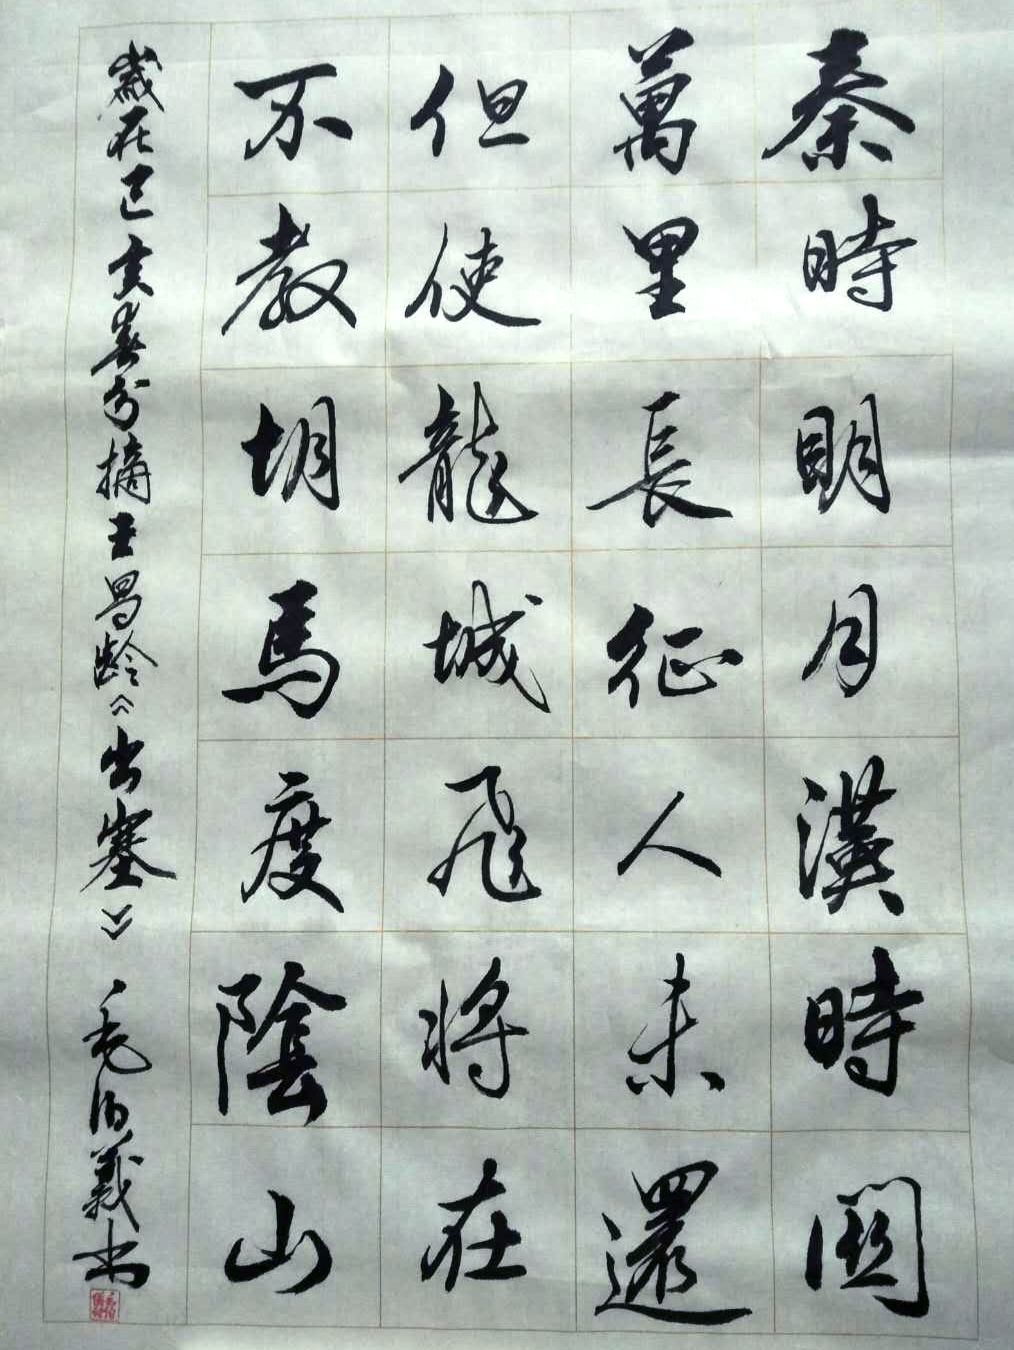 秦時明月漢時關
萬里長征人未還
但使龍城飛將在
不教胡馬度陰山
歲在己亥春分摘王昌龄《出塞》 毛伯義书